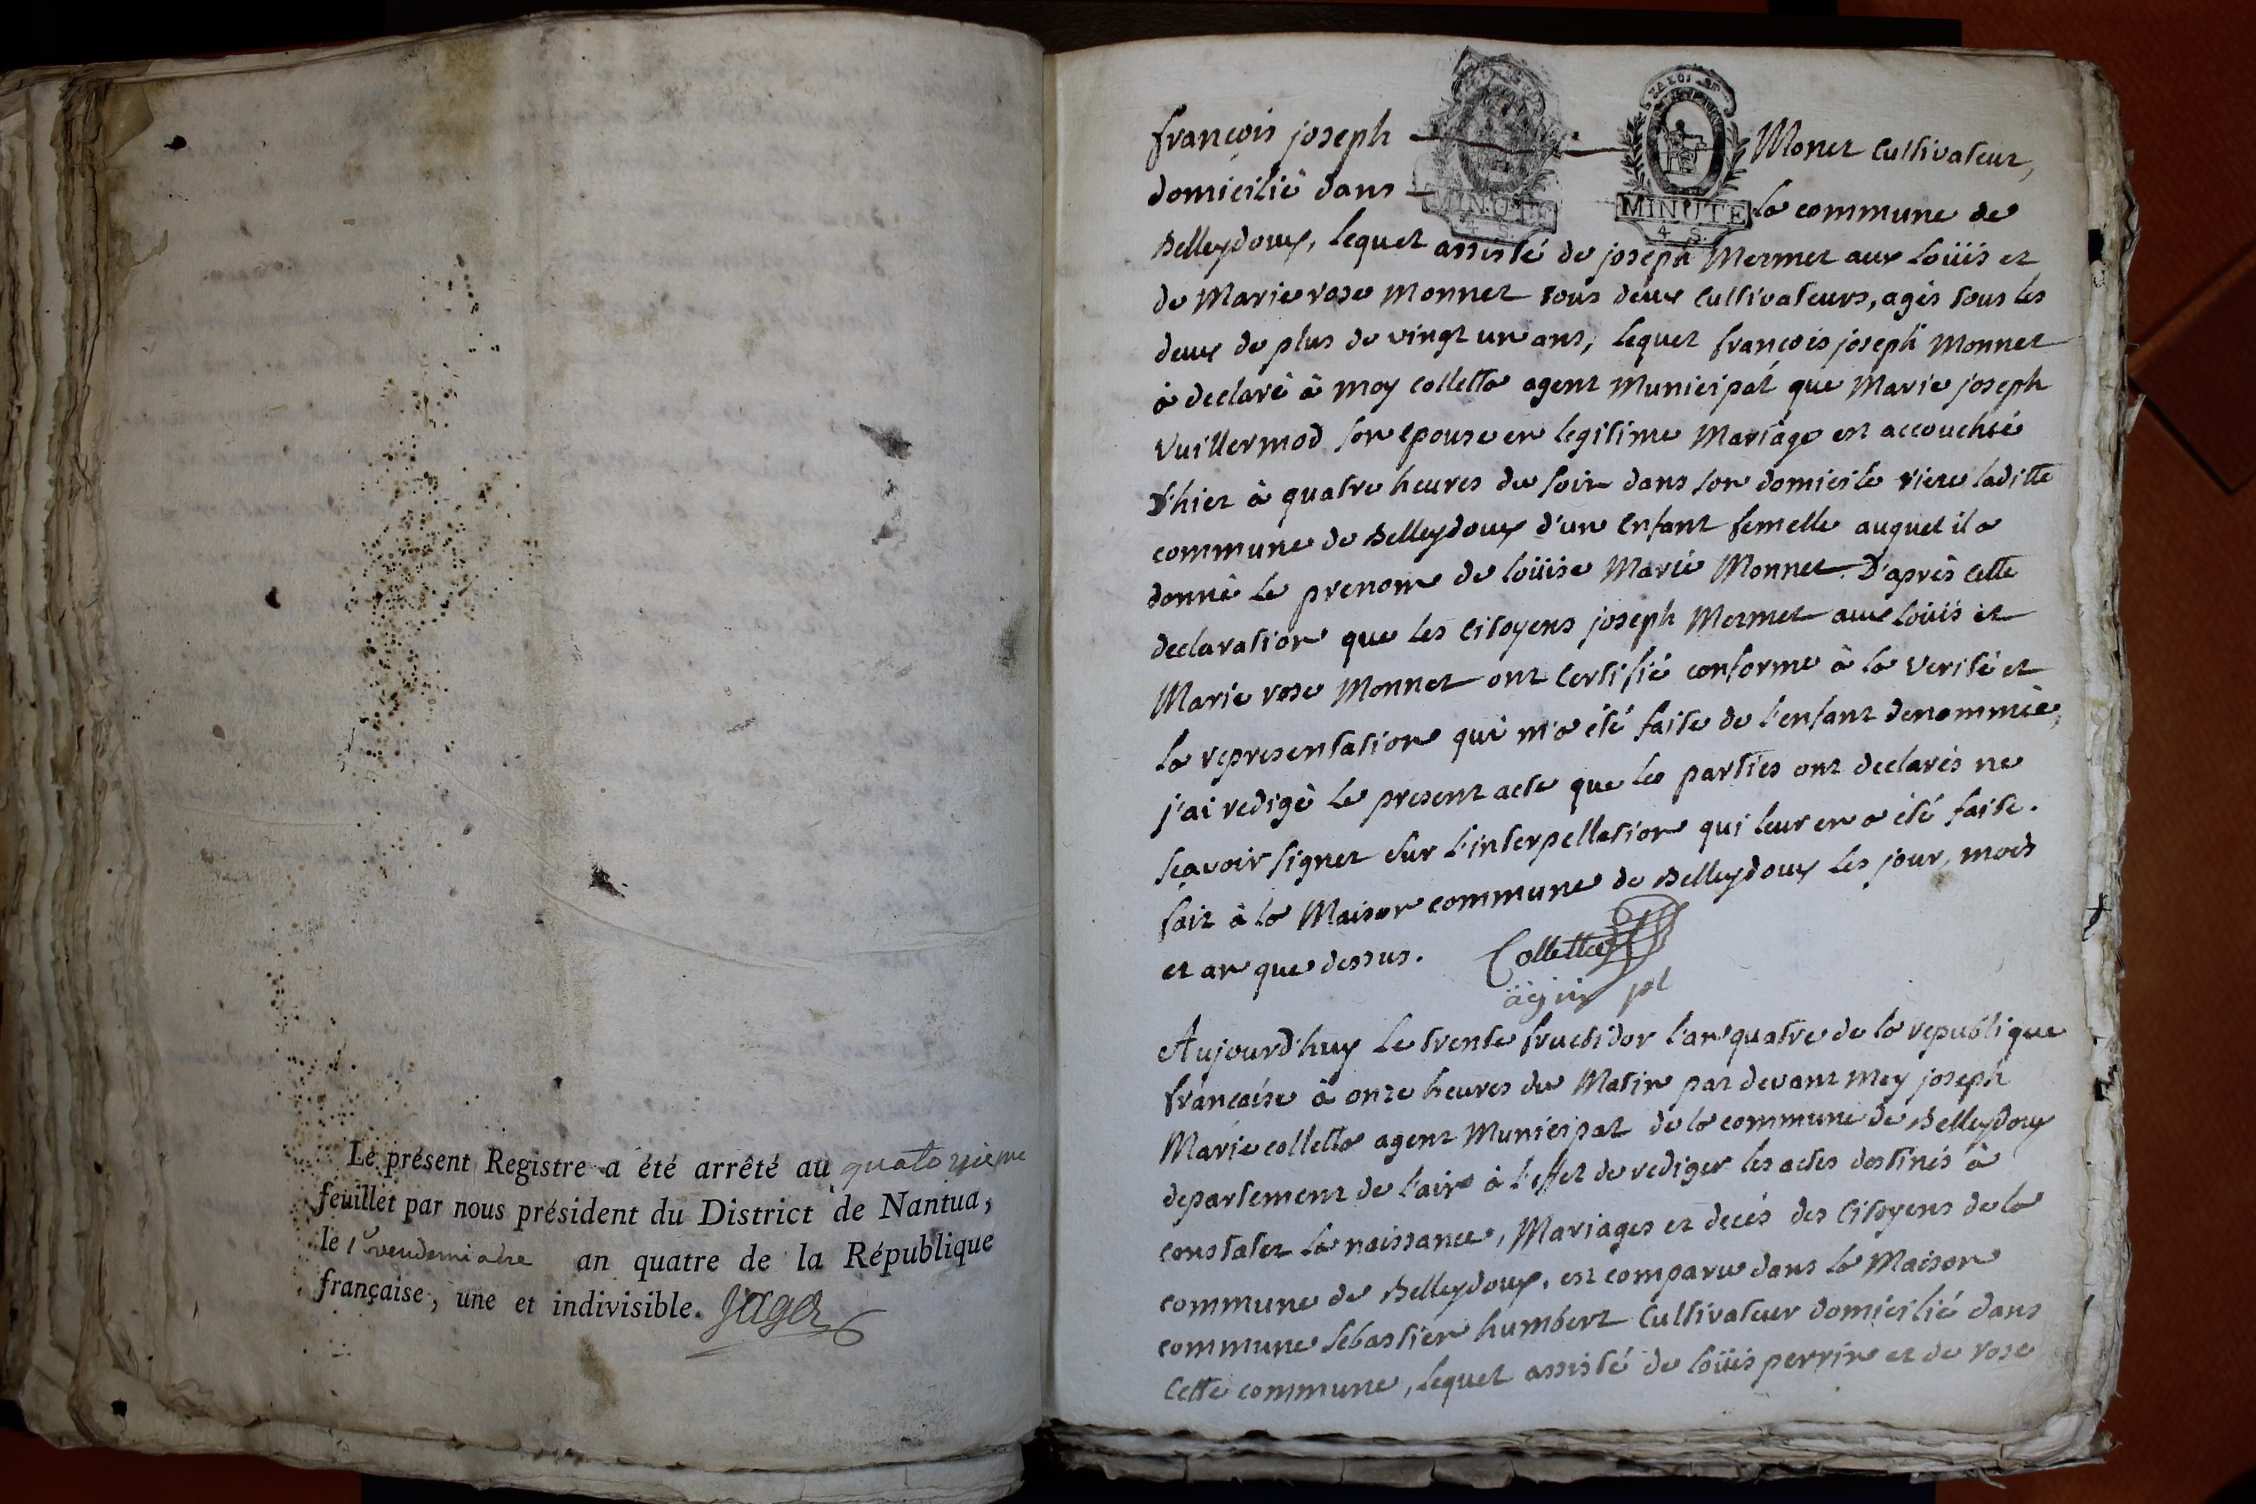 Le présent Registre a été arrêté au quatorzieme
feuillet par nous président du District de Nantua,
le 1er vendemiaire an quatre de la République
française, une et indivisible. Jager
françois joseph Monet Cultivateur,
domicilié dans la commune de
MINUTE
4 S.
MINUTE
4 S.
Belleydoux, lequel assisté de joseph Mermet aux Loüis et
de Marie rose Monnet tous deux Cultivateurs, agés tous les
deux de plus de vingt un ans, lequel françois joseph Monnet
a declaré à moy Colletta agent Municipal que Marie joseph
Vuillermod son epouse en legitime Mariage est accouchée
d'hier à quatre heures du soir dans son domicile riere laditte
commune de Belleydoux d'un Enfant femelle auquel il a
donné le prenom de loüise Marie Monnet. D'après cette
declaration que les Citoyens joseph Mermet aux Loüis et
Marie rose Monnet ont Certifié conforme à la verité et
la representation qui m'a été faite de l'enfant denommée,
j'ai redigé le present acte que les parties ont declarés ne
sçavoir signer sur l'interpellation qui leur en a été faite.
fait à la Maison commune de Belleydoux les jour, mois
et an que dessus. Colletta
Aujourd'huy le trente fructidor l'an quatre de la republique
francaise à onze heures du Matin par devant moy joseph
Marie colletta agent Municipal de la commune de Belleydoux
departement de l'ain à l'effet de rediger les actes destinés à
constater la naissance, Mariages et decés des Citoyens de la
commune de Belleydoux, est comparu dans la Maison
commune sebastien humbert Cultivateur domicilié dans
Cette commune, lequel assisté de loüis perrin et de rose